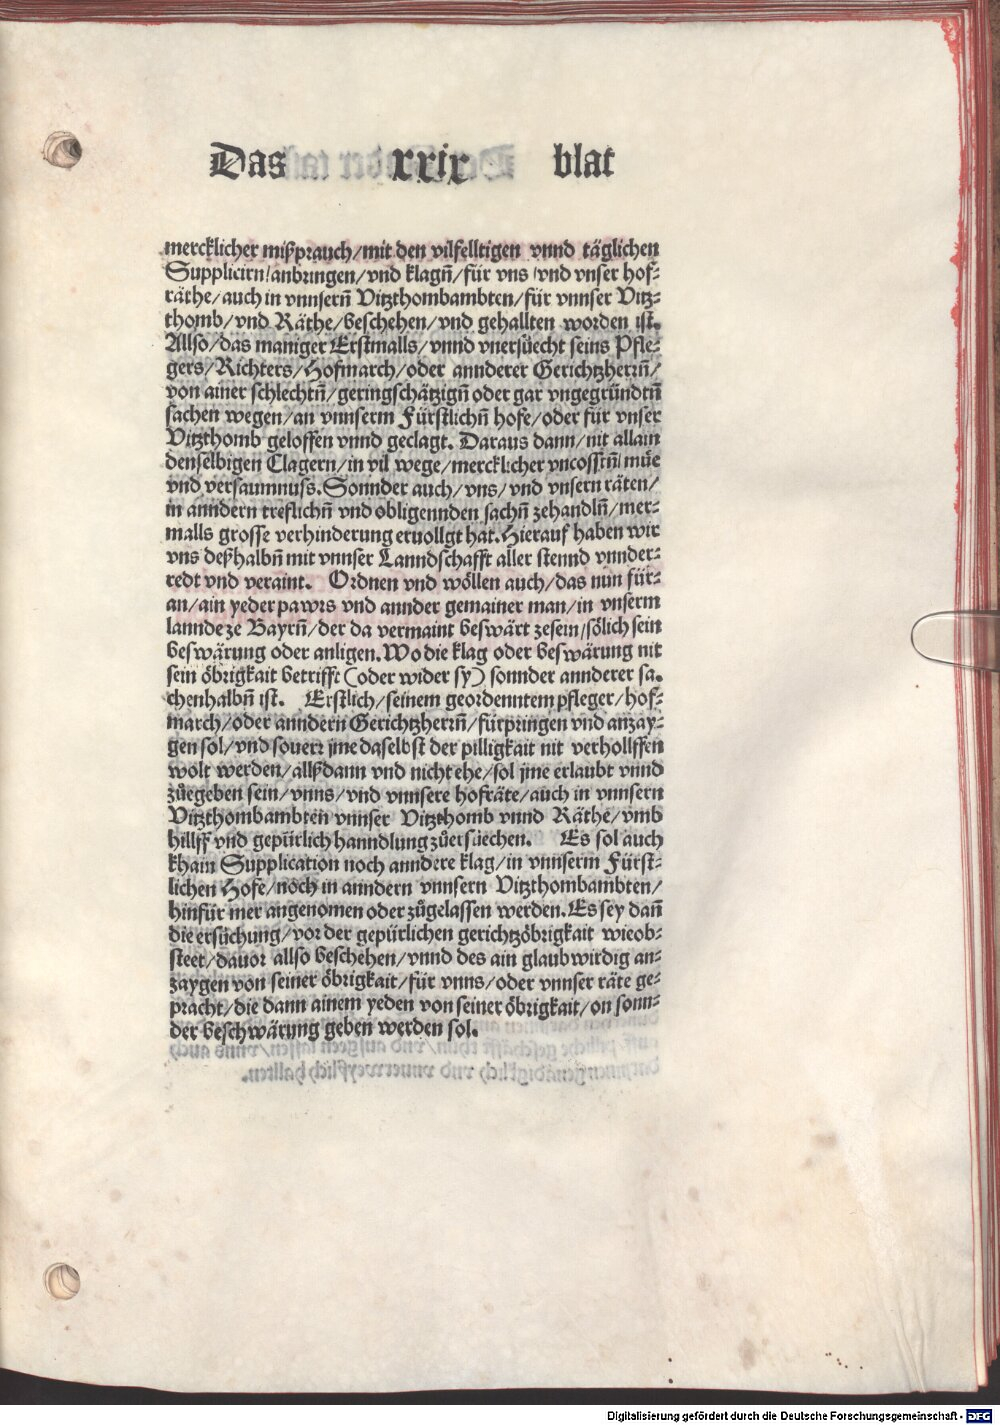 Das xxix blat
mercklicher mißprauch/mit den vilfelltigen vnnd täglichen
Supplicirn/anbringen/vnd klagn̄/für vns/vnd vnser hof-
räthe/auch in vnnsern̄ Vitzthombambten/für vnnser Vitz-
thomb/vnd Räthe/beschehen/vnd gehallten worden ist.
Allso/das maniger Erstmalls/vnnd vnersůecht seins Pfle-
gers/Richters/Hofmarch/oder annderer Gerichtzherrn̄/
von ainer schlechtn̄/geringschätzign̄ oder gar vngegründtn̄
sachen wegen/an vnnserm Fürstlichn̄ hofe/oder für vnser
Vitzthomb geloffen vnnd geclagt. Daraus dann/nit allain
denselbigen Clagern/in vil wege/mercklicher vncosstn̄/müe
vnd versaumnuss. Sonnder auch/vns/vnd vnsern räten/
in anndern treflichn̄ vnd obligennden sachn̄ zehandln̄/mer-
malls grosse verhinderung eruollgt hat. Hierauf haben wir
vns deßhalbn̄ mit vnnser Lanndschafft aller stennd vnnder-
redt vnd veraint. Ordnen vnd wöllen auch/das nun für-
an/ain yeder pawrs vnd annder gemainer man/in vnserm
lannde ze Bayrn̄/der da vermaint beswärt zesein/sölich sein
beswärung oder anligen. Wo die klag oder beswärung nit
sein öbrigkait betrifft (oder wider sy) sonnder annderer sa-
chenhalbn̄ ist. Erstlich/seinem geordenntem pfleger/hof-
march/oder anndern Gerichtzherrn̄/fürpringen vnd anzay-
gen sol/vnd souerr jme daselbst der pilligkait nit verhollffen
wolt werden/allßdann vnd nicht ehe/sol jme erlaubt vnnd
zůegeben sein/vnns/vnd vnnsere hofräte/auch in vnnsern
Vitzthombambten vnnser Vitzthomb vnnd Räthe/vmb
hillff vnd gepürlich hanndlung zůersůechen. Es sol auch
khain Supplication noch anndere klag/in vnnserm Fürst-
lichen Hofe/noch in anndern vnnsern Vitzthombambten/
hinfür mer angenomen oder zůgelassen werden. Es sey dan̄
die ersůchung/vor der gepürlichen gerichtzöbrigkait wieob-
steet/dauor allso beschehen/vnnd des ain glaubwirdig an-
zaygen von seiner öbrigkait/für vnns/oder vnnser räte ge-
pracht/die dann ainem yeden von seiner öbrigkait/on sonn-
der beschwärung geben werden sol.
Digitalisierung gefördert durch die Deutsche Forschungsgemeinschaft - DFG